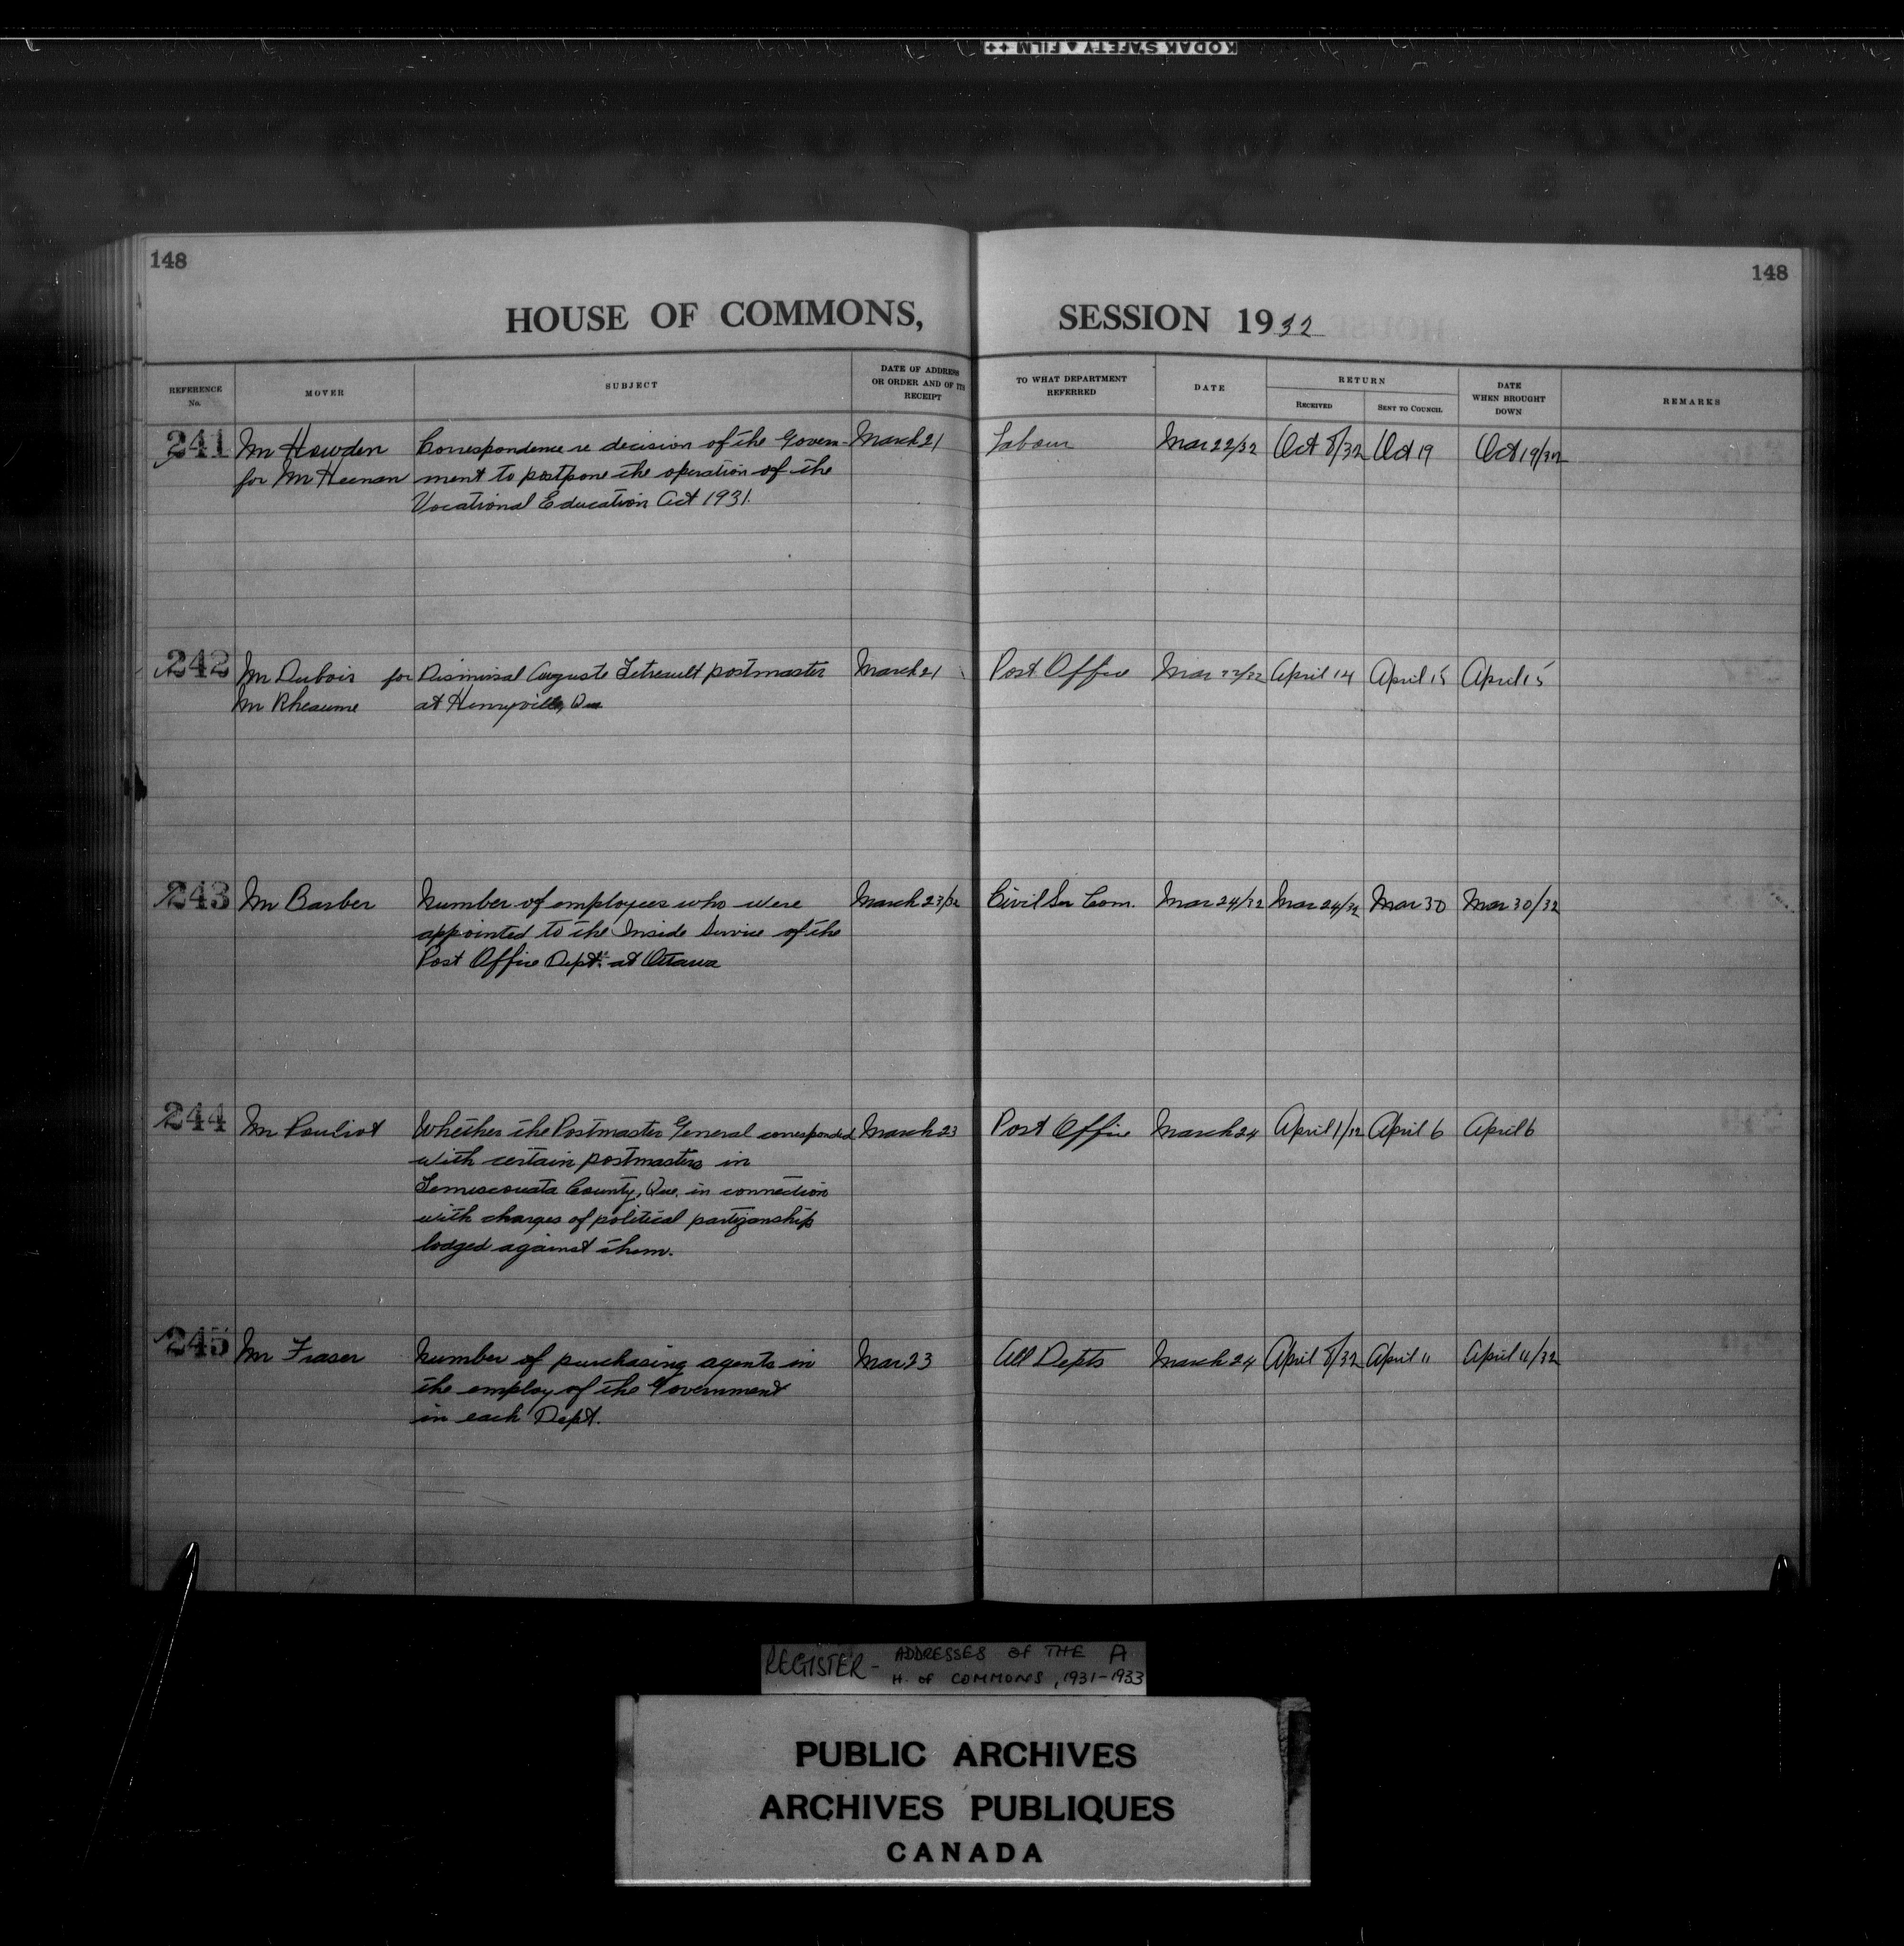 KODAK SAFETY ▲ FILM ++
148
148
HOUSE OF COMMONS,
SESSION 1932
REFERENCE No.
MOVER
SUBJECT
DATE OF ADDRESS OR ORDER AND OF ITS RECEIPT
TO WHAT DEPARTMENT REFERRED
DATE
RETURN
RECEIVED
SENT TO COUNCIL
DATE WHEN BROUGHT DOWN
REMARKS
241 Mr Howden Correspondence re decision of the Govern- March 21 Labour Mar 22/32 Oct 8/32 Oct 19 Oct 19/32
for Mr Heenan ment to postpone the operation of the
Vocational Education Act 1931.
242 Mr Dubois for Dismissal Auguste Tetreault postmaster March 21 Post Office Mar 22/32 April 14 April 15 April 15
Mr Rheaume at Henryville, Que
243 Mr Barber Number of employees who were March 23/32 Civil Ser Com. Mar 24/32 Mar 24/32 Mar 30 Mar 30/32
appointed to the Inside Service of the
Post Office Dept. at Ottawa
244 Mr Pouliot Whether the Postmaster General corresponded March 23 Post Office March 24 April 1/12 April 6 April 6
with certain postmasters in
Temiscouata County, Que. in connection
with charges of political partizanship
lodged against them.
245 Mr Fraser Number of purchasing agents in Mar 23 All Depts March 24 April 8/32 April 11 April 11/32
the employ of the Government
in each Dept.
REGISTER - ADDRESSES OF THE A
H. of COMMONS, 1931-1933
PUBLIC ARCHIVES
ARCHIVES PUBLIQUES
CANADA